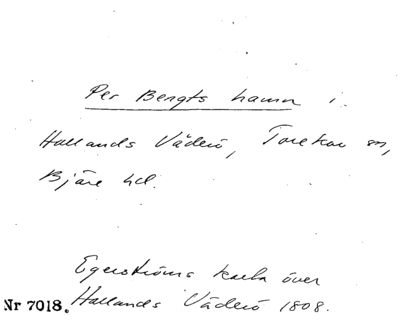 Per Bengts hamn i
Hallands Väderö, Torekov sn,
Bjäre hd.
Egerströms karta över
Nr 7018. Hallands Väderö 1808.